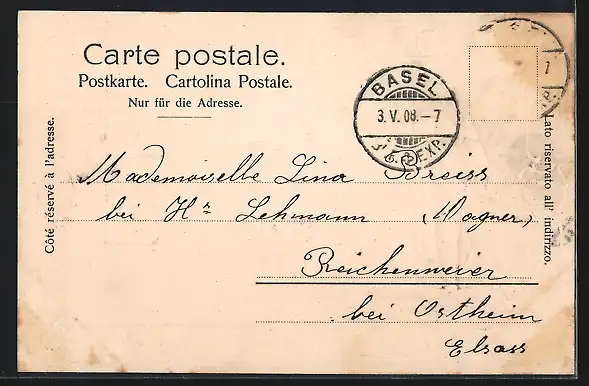 Carte postale.
Postkarte. Cartolina Postale.
Nur für die Adresse.
Côté réservé à l'adresse.
Lato riservato all' indirizzo.
BASEL
3.V.08.-7
EXP.
Mademoiselle Lina Breiss
bei Hr Lehmann (Wagner)
Reichenweier
bei Ostheim
Elsass